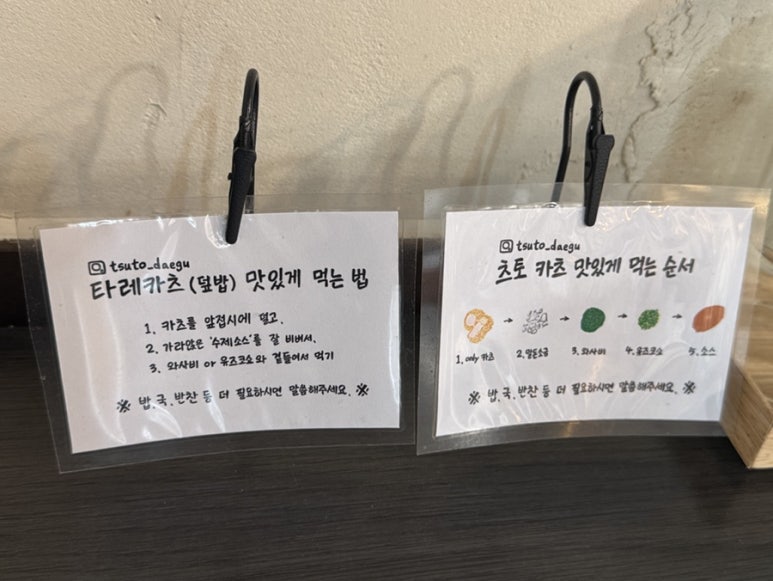 tsuto_daegu
타레카츠 (덮밥) 맛있게 먹는 법
1. 카츠를 앞접시에 덜고.
2. 가라앉은 '수제소스'를 잘 비벼서.
3. 와사비 or 유즈코쇼와 곁들여서 먹기
※ 밥.국.반찬 등 더 필요하시면 말씀해주세요. ※
tsuto_daegu
츠토 카츠 맛있게 먹는 순서
1. only 카츠 → 2. 말돈소금 → 3. 와사비 → 4. 유즈코쇼 → 5. 소스
※ 밥.국.반찬 등 더 필요하시면 말씀해주세요. ※